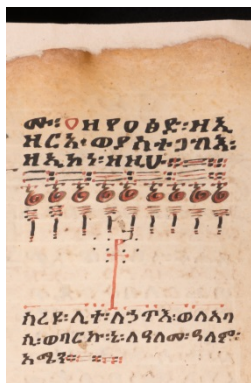 ሙ፡ ዐዘየዐፅድ፡ ዘኢ
ዘርአ፡ ወያስተጋብእ፡
ዘኢኮነ፡ ዘዚሁ፡
ስረዩ፡ ሊተ፡ ለኃጥእ፡ ወለአባ
ኪ፡ ወባርኩ፡ ኒ፡ ለዓለመ፡ ዓለም፡
አሜን